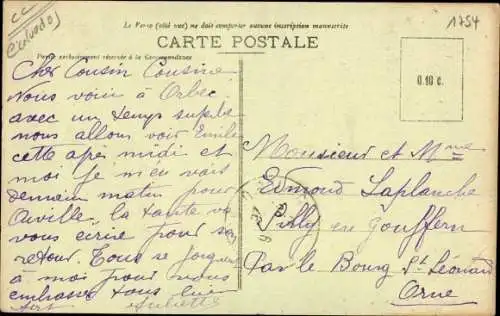 CC
(Calvados)
1754
Le Verso (côté vue) ne doit comporter aucune inscription manuscrite
CARTE POSTALE
Partie exclusivement réservée à la Correspondance
0.10 c.
Cher Cousin Cousine
Nous voici à Orbec
avec un temps superbe
nous allons voir Emile
cette après midi et
moi je m'en vais
demain matin pour
la tante va
vous écrire pour son
retour. Tous se joignent
à moi pour vous
embrasser tous
Juliette
Monsieur et Mme
Edmond Laplanche
Silly en Gouffern
Par le Bourg St Léonard
Orne